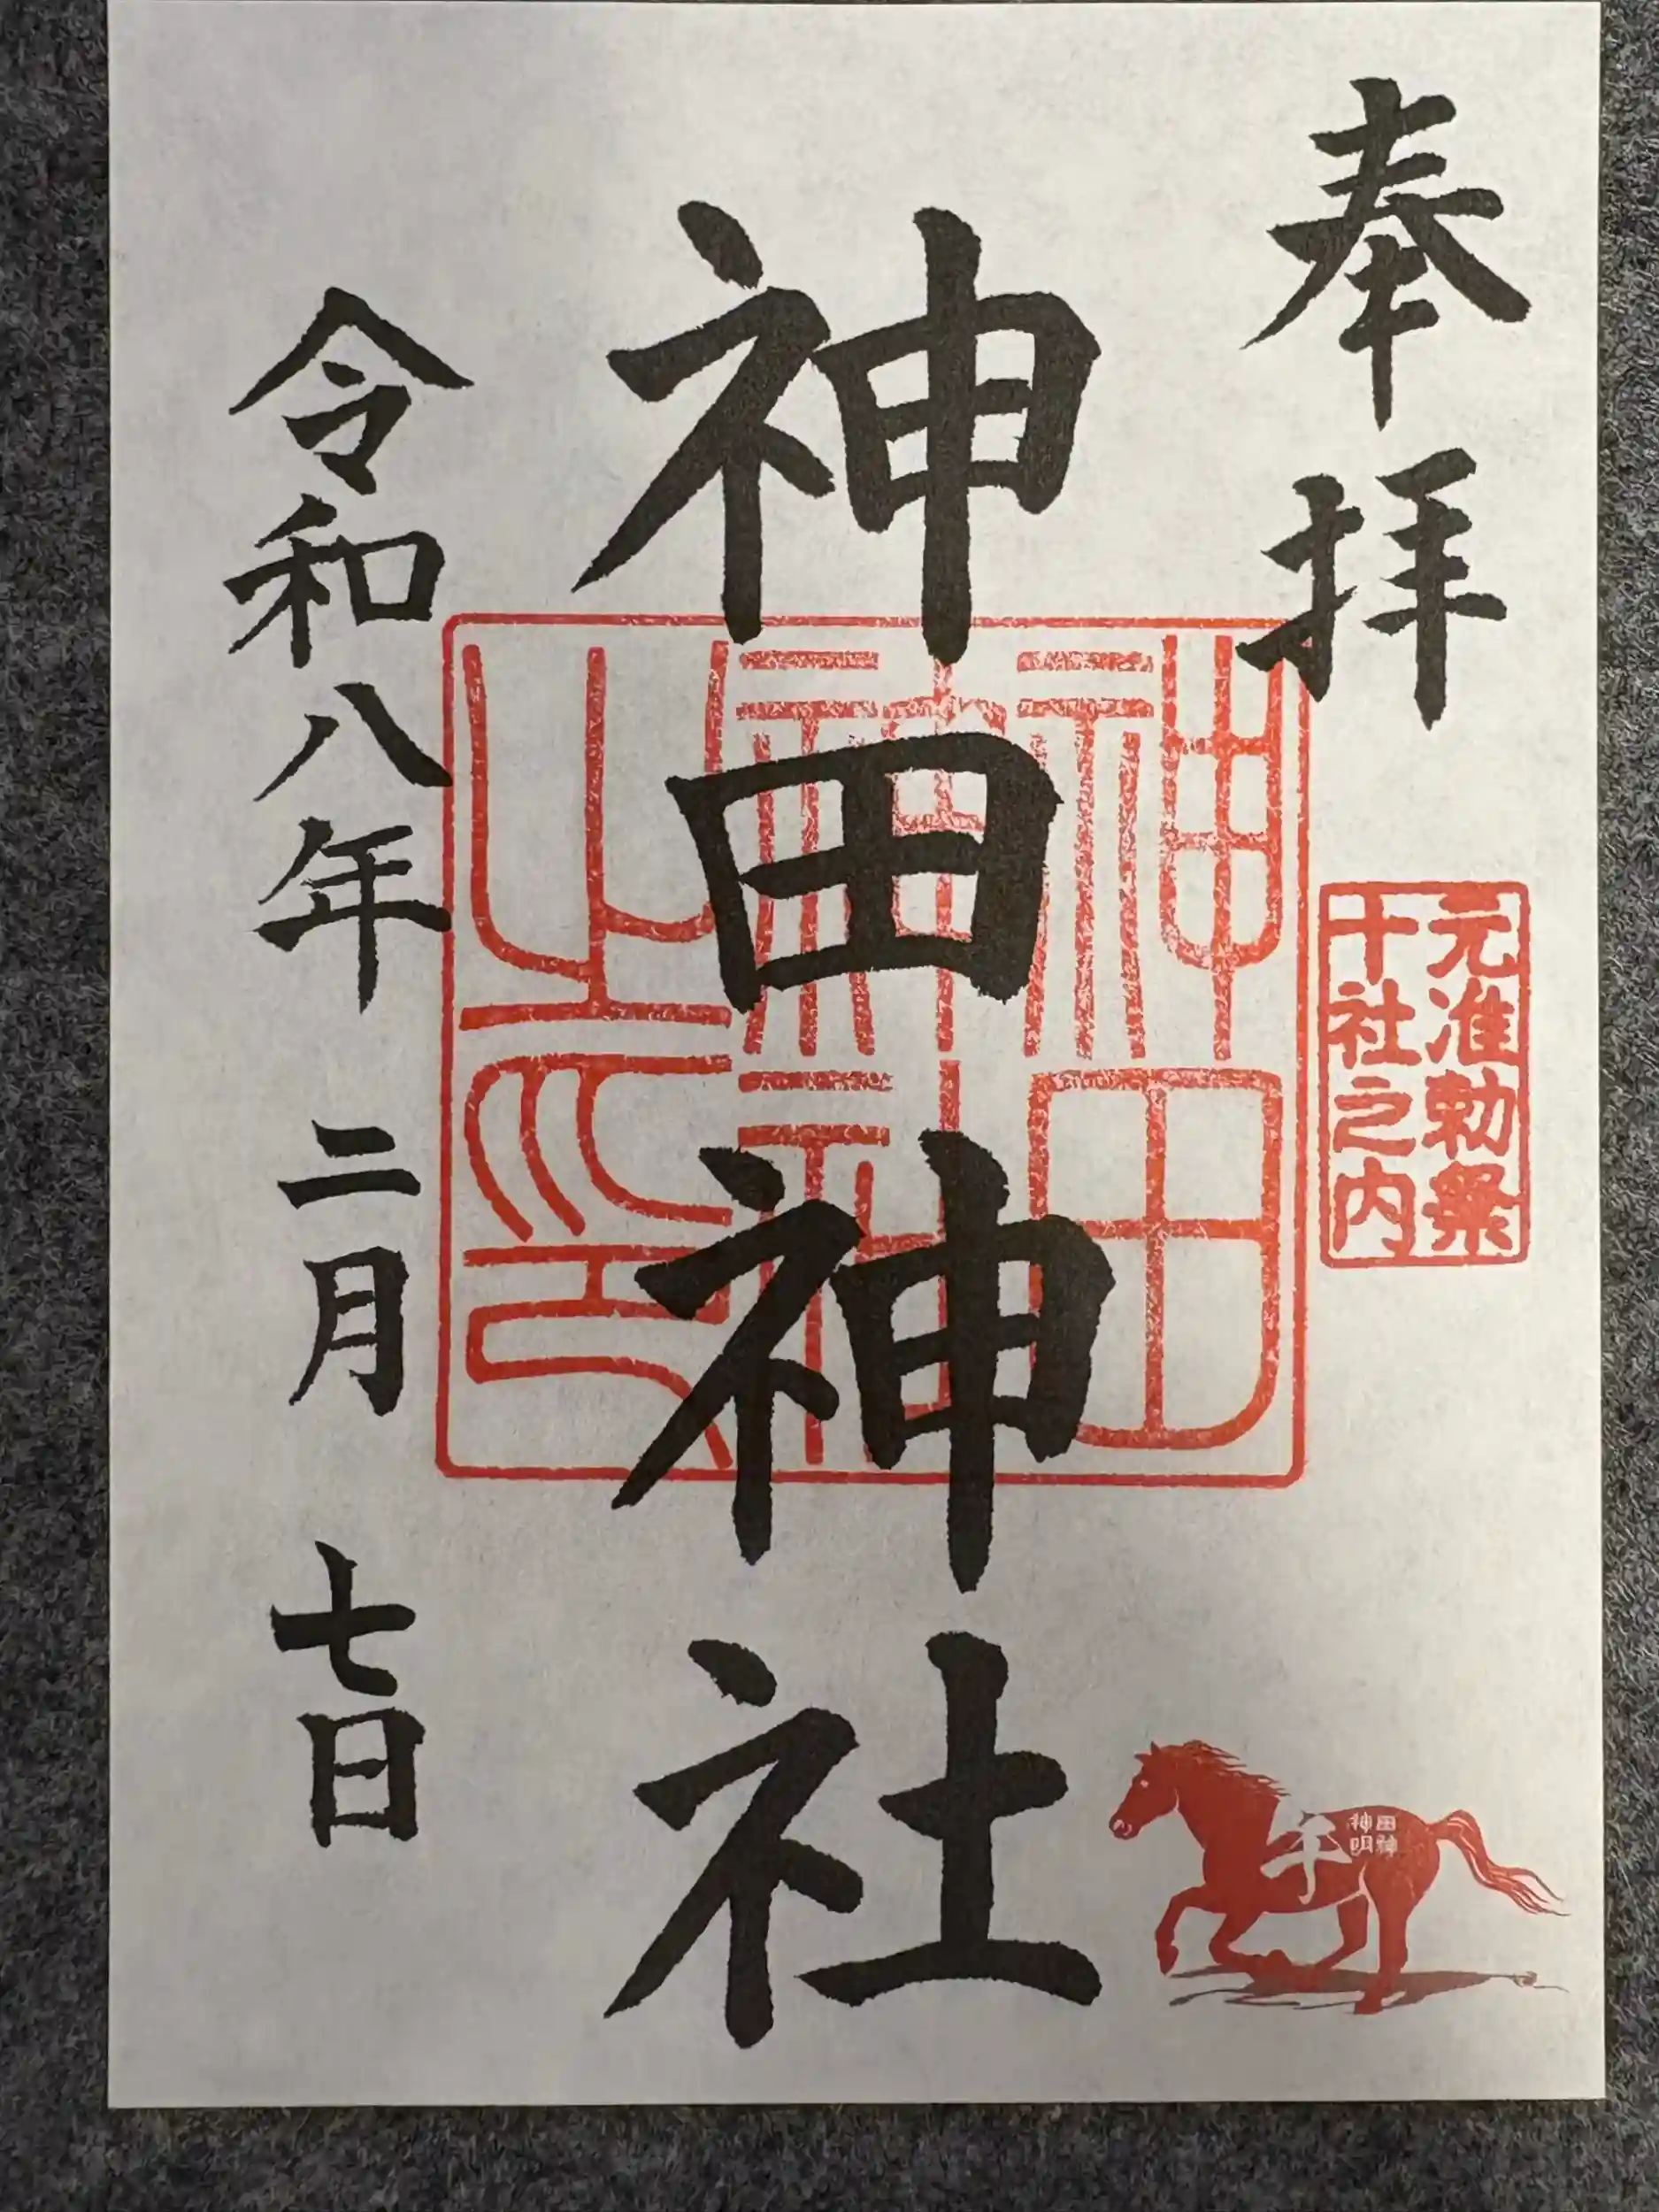 奉拝
元准勅祭
十社之内
神田神社
神田神社之印
令和八年 二月 七日
午
田神
神明